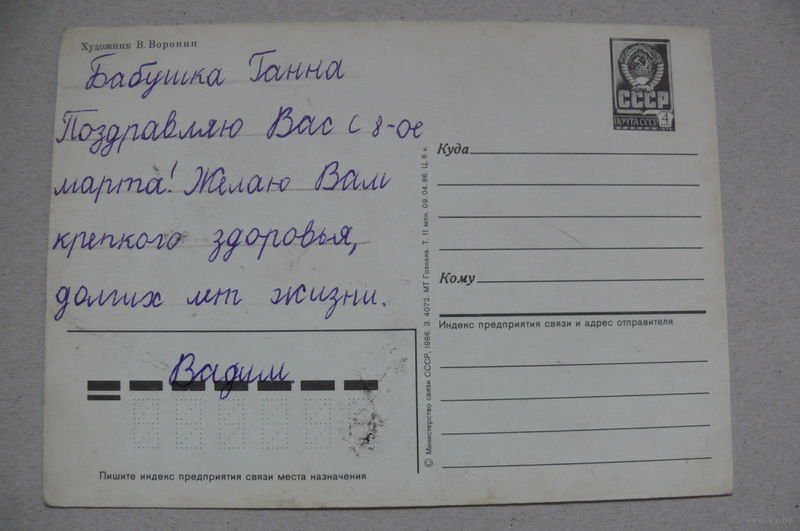 Художник В. Воронин
Бабушка Ганна
Поздравляю Вас с 8-ое
марта! Желаю Вам
крепкого здоровья,
долгих лет жизни.
Вадим
Пишите индекс предприятия связи места назначения
© Министерство связи СССР, 1986. З. 4072. МТ Гознака. Т. 11 млн. 09.04.86. Ц. 6 к.
СССР
ПОЧТА СССР 4
Куда
Кому
Индекс предприятия связи и адрес отправителя
www.ay.by